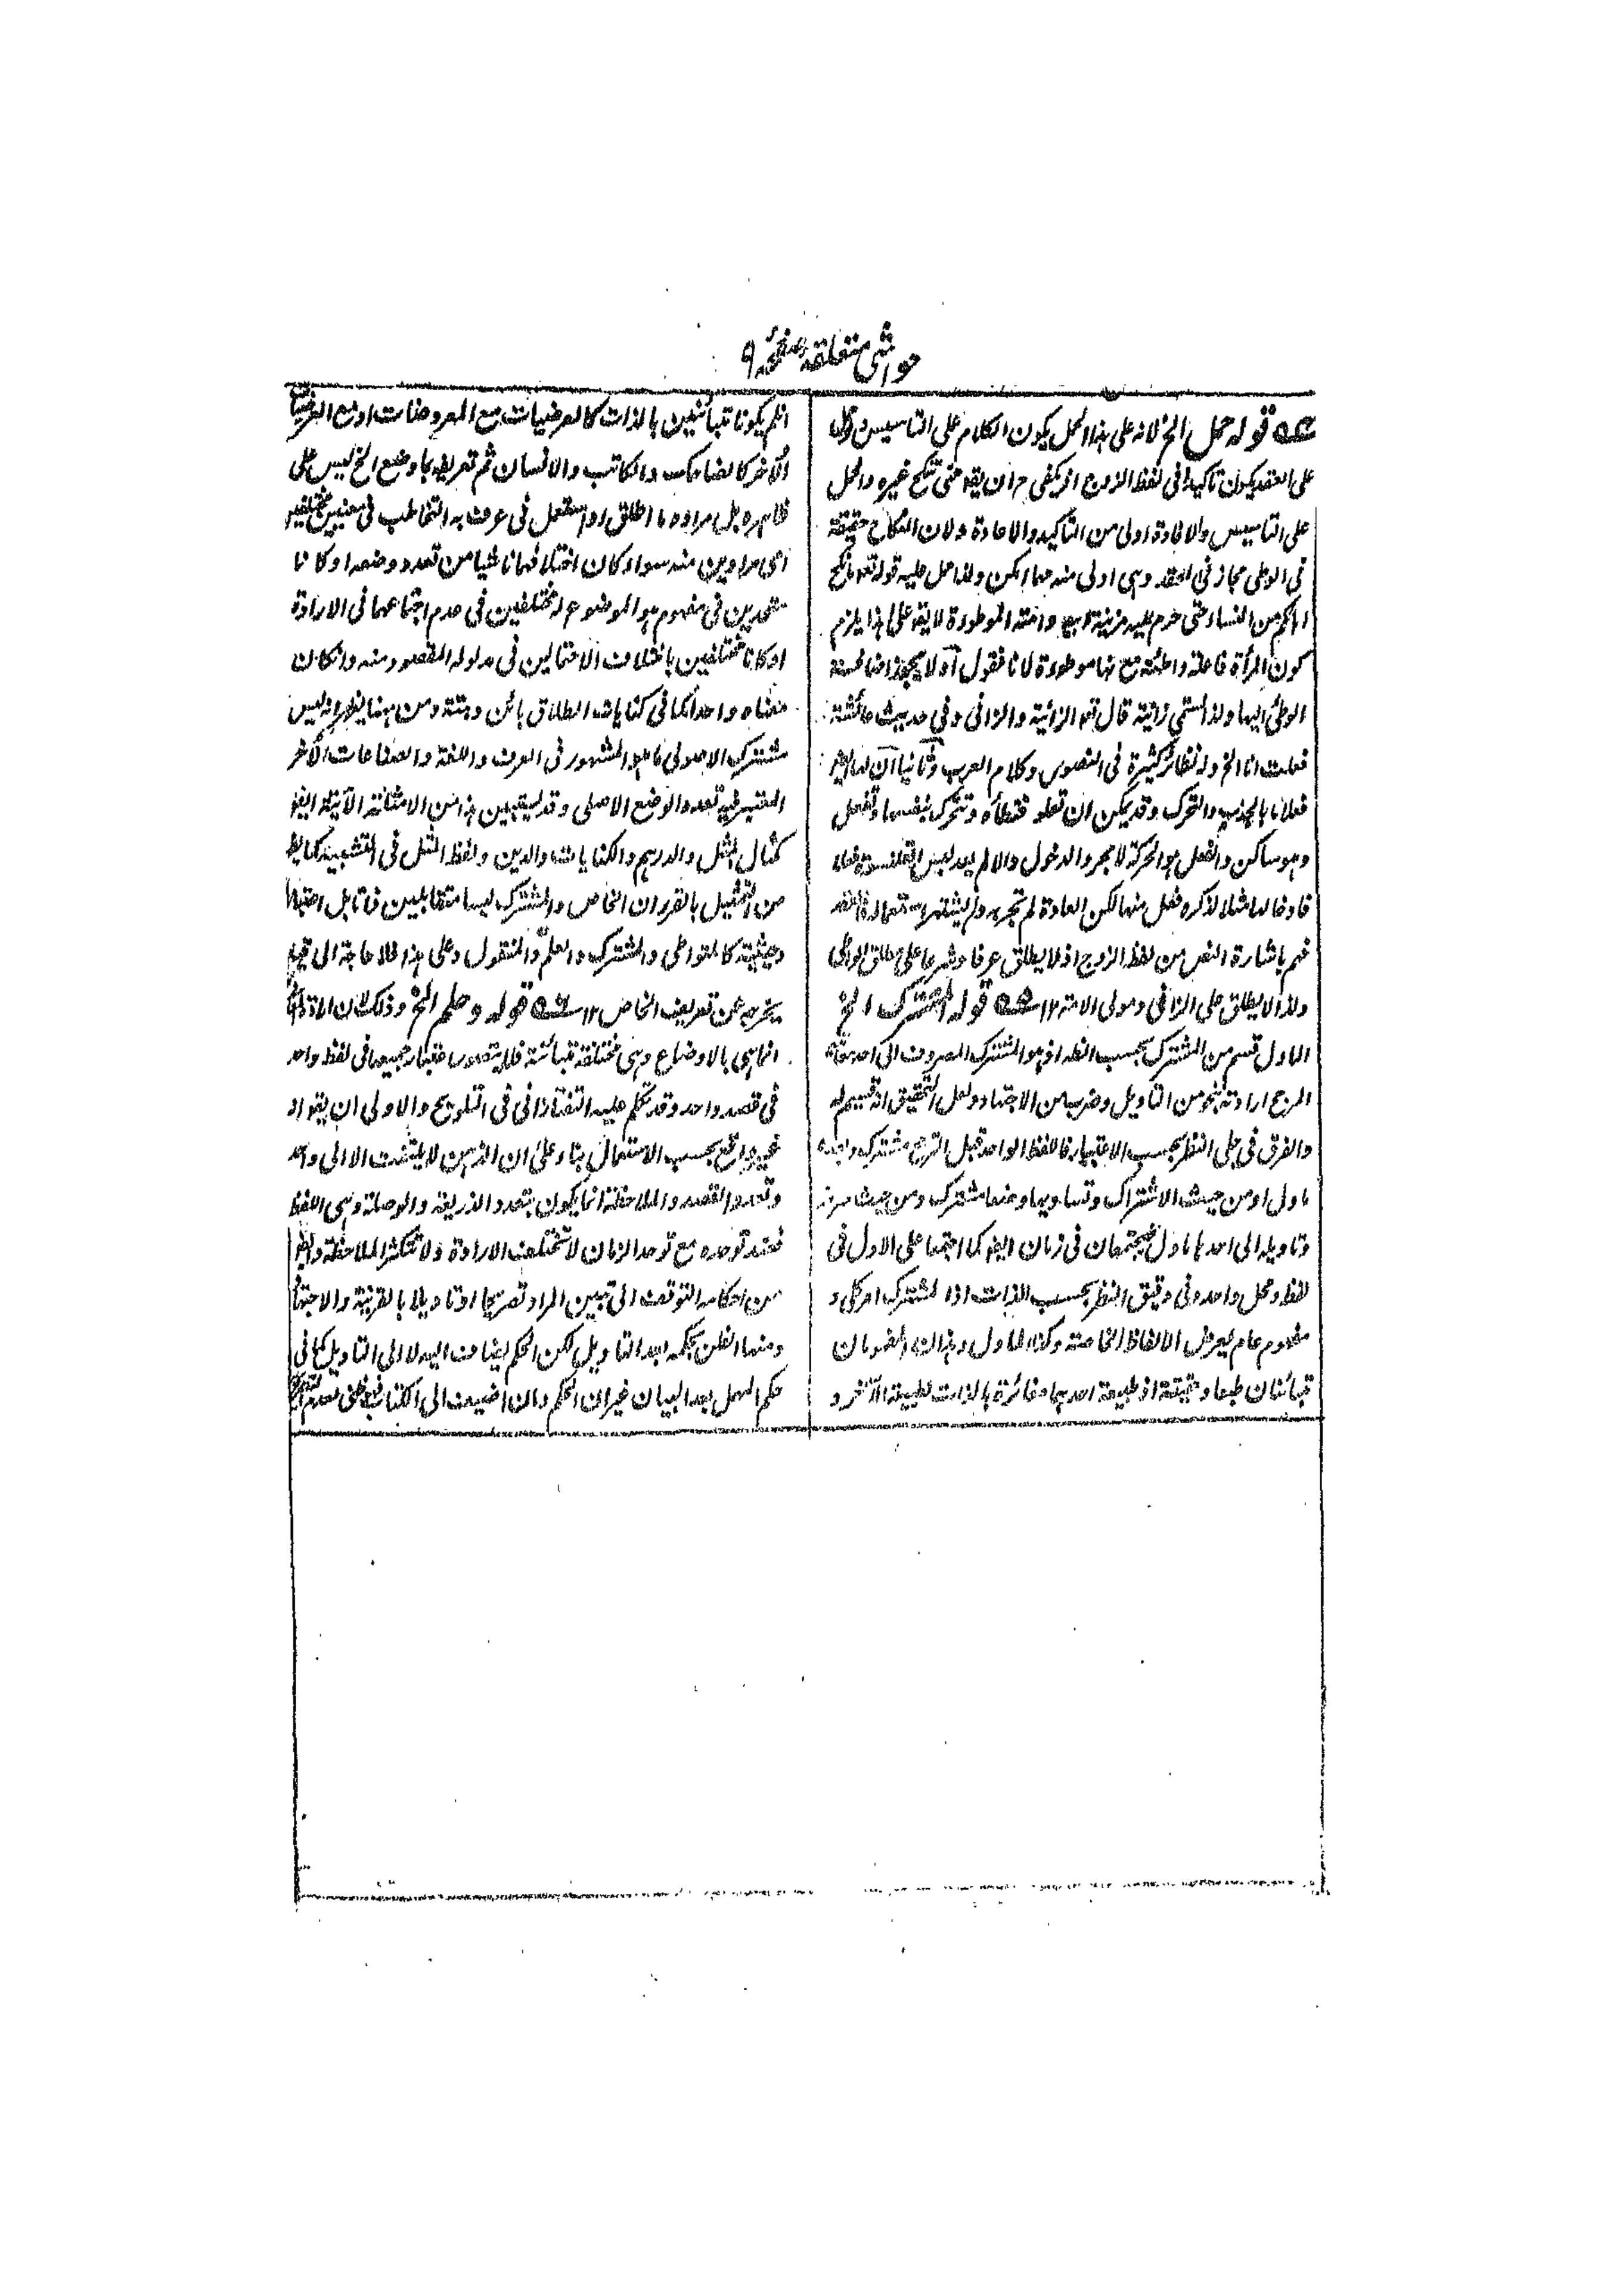 حواشی متعلقہ صفحہ ۹
قوله حمل الخ لانه علی هذا الحمل یکون الکلام علی التاسیس
علی العقد یکون تاکیدا فی لفظ الزوج اذ یکفی ح ان یقه حتی تنکح غیره والحمل
علی التاسیس والافادة اولی من التاکید والاعادة ولان النکاح حقیقة
فی الوطی مجاز فی العقد وهی اولی منه مهما امکن ولذا حمل علیه قوله تعه ما نکح
اباؤکم من النساء حتی حرم علیه مزنیة ابیه وامته الموطوءة لا یقه علی هذا یلزم
کون المرأة فاعلة واطئة مع انها موطوءة لانا نقول اولا یجوز اضافة
الوطی الیها ولذا تسمی زانیة قال تعه الزانیة والزانی وفی حدیث عائشة
فعلت انا الخ وله نظائر کثیرة فی النصوص وکلام العرب وثانیا ان لها
فعلا بالجذب والتحرک وقد یمکن ان تعلو فتطأه وتتحرک بنفسها وتفعل
وهو ساکن والفعل هو الحرکة لا مجرد الدخول والا لم یعد لبس القلنسوة فعلا
فادخالها مثلا لذکره فعل منها لکن العادة لم تجر به ولم یشتهر استعماله
فهم باشارة النص من لفظ الزوج اذ لا یطلق عرفا وشرعا علی مطلق الواطی
ولذا لا یطلق علی الزانی ومولی الامة ۱۲ قوله المشترک الخ
الماول قسم من المشترک بحسب النظر اذ هو المشترک المصروف الی احد
المرجح ارادته بنحو من التاویل وضرب من الاجتهاد ولعل التحقیق انه قسیم له
والفرق فی جلی النظر بحسب الاعتبار فاللفظ الواحد قبل الترجح مشترک وبعده
ماول او من حیث الاشتراک وتساویهما وضعا مشترک ومن حیث صرفه
وتاویله الی احدهما ماول فیجتمعان فی زمان ایضا کما اجتمعا علی الاول فی
لفظ ومحل واحد وفی دقیق النظر بحسب الذات اذ المشترک امر کلی و
مفهوم عام یعرض الالفاظ الخاصة وکذا الماول وهذان المفهومان
متبائنان طبعا وحقیقة اذ طبیعة احدهما مغائرة بالذات لطبیعة الآخر و
ان لم یکونا متبائنین بالذات کالعرضیات مع المعروضات او مع العرضیات
الآخر کالضاحک والکاتب والانسان ثم تعریفه بما وضع الخ لیس علی
ظاهره بل مراده ما اطلق او استعمل فی عرف به التخاطب فی معنیین مختلفین
ای مرادین منه سواء کان اختلافهما ناشیا من تعدد وضعه او کانا
متحدین فی مفهوم هو الموضوع له مختلفین فی عدم اجتماعهما فی الارادة
او کانا مختلفین باختلاف الاحتمالین فی مدلوله المقصود منه وان کان
معناه واحدا کما فی کنایات الطلاق بائن وبتة ومن ههنا یظهر انه لیس
مشترک الاصولی ما هو المشهور فی العرف واللغة والصناعات الآخر
المعتبر فیه تعدد الوضع الاصلی وقد یستبین هذا من الامثلة الآتیة
کمثال المثل والدرهم والکنایات والدین ولفظ المثل فی التشبیه کما یظهر
من التمثیل بالقرء ان الخاص والمشترک لیسا متقابلین فتابل اعتبارا
وحیثیة کالمتواطی والمشترک والعلم والمنقول وعلی هذا فلا حاجة الی قید
یخرجه عن تعریف الخاص ۱۲ قوله وحکم الخ وذلک لان الارادة
انما هی بالاوضاع وهی مختلفة متبائنة فلا یتصور اعتبار جمیعها فی لفظ واحد
فی قصد واحد وقد تکلم علیه التفتازانی فی التلویح والاولی ان یقه انه
غیر واقع بحسب الاستعمال بناء علی ان الذهن لا یلتفت الا الی واحد
وتعدد القصد والملاحظة انما یکون بتعدد الذریعة والوصلة وهی اللفظ
فعند توحده مع توحد الزمان لا تختلف الارادة ولا تتکثر الملاحظة
من احکامه التوقف الی تبیین المراد تصریحا او تاویلا بالقرینة والاجتهاد
ومنها الظن بحکمه بعد التاویل لکن الحکم یضاف الیه لا الی التاویل کما فی
حکم المجمل بعد البیان غیر ان الحکم وان اضیف الی الکتاب